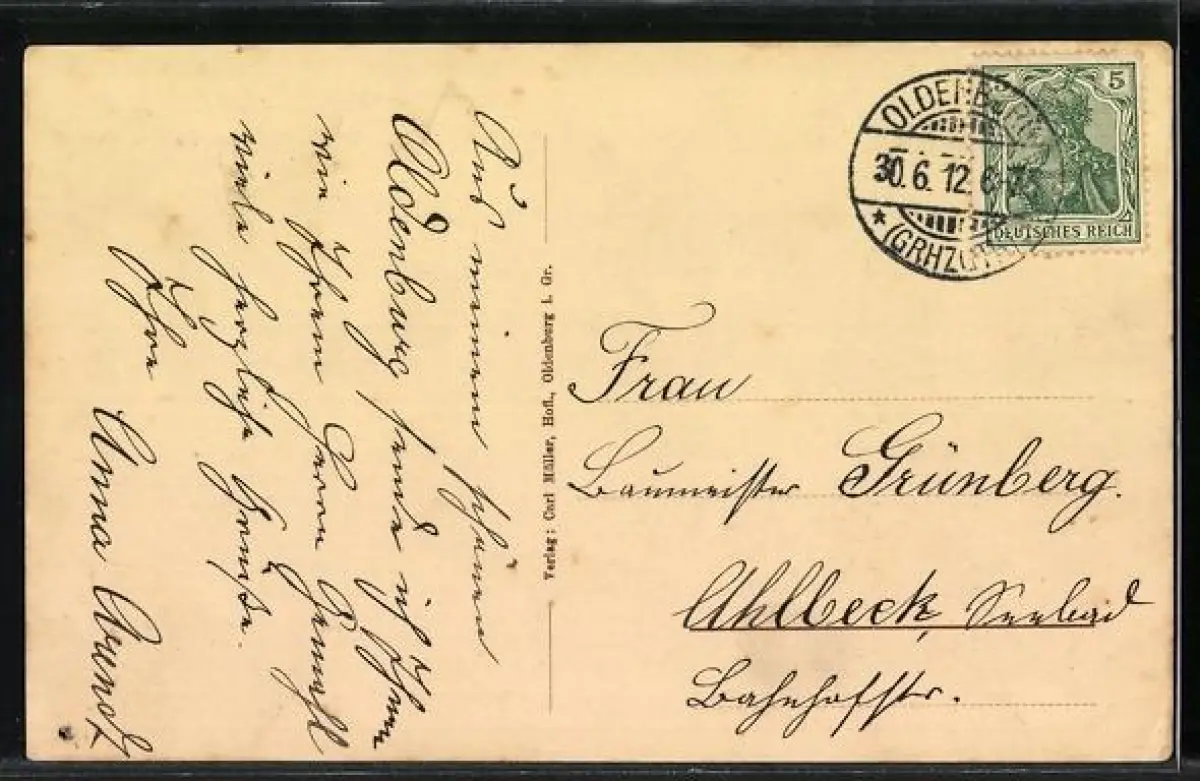 Aus meinem schönen
Oldenburg sende ich Ihnen
wie Ihrem Herrn Gemahl
viele herzliche Grüße.
Ihre
Anna Arendt
Verlag: Carl Müller, Hofl., Oldenburg i. Gr.
OLDENBURG
30.6.12. 6-7
* (GRHZGT
5 5
DEUTSCHES REICH
Frau
Baumeister Grünberg.
Ahlbeck, Seebad
Bahnhofstr.